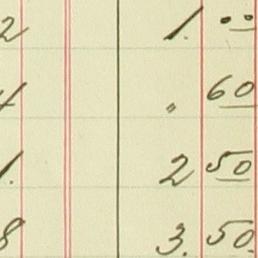 2 1. 00
4 " 60
1. 2 50
8 3. 50